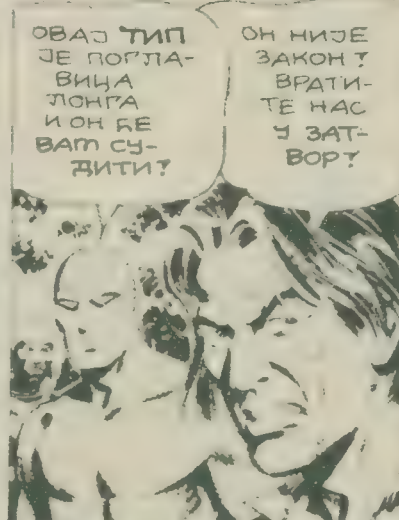 ОВАЈ ТИП
ЈЕ ПОГЛА-
ВИЦА
ЛОНГА
И ОН ЋЕ
ВАМ СУ-
ДИТИ!
ОН НИЈЕ
ЗАКОН!
ВРАТИ-
ТЕ НАС
У ЗАТ-
ВОР!